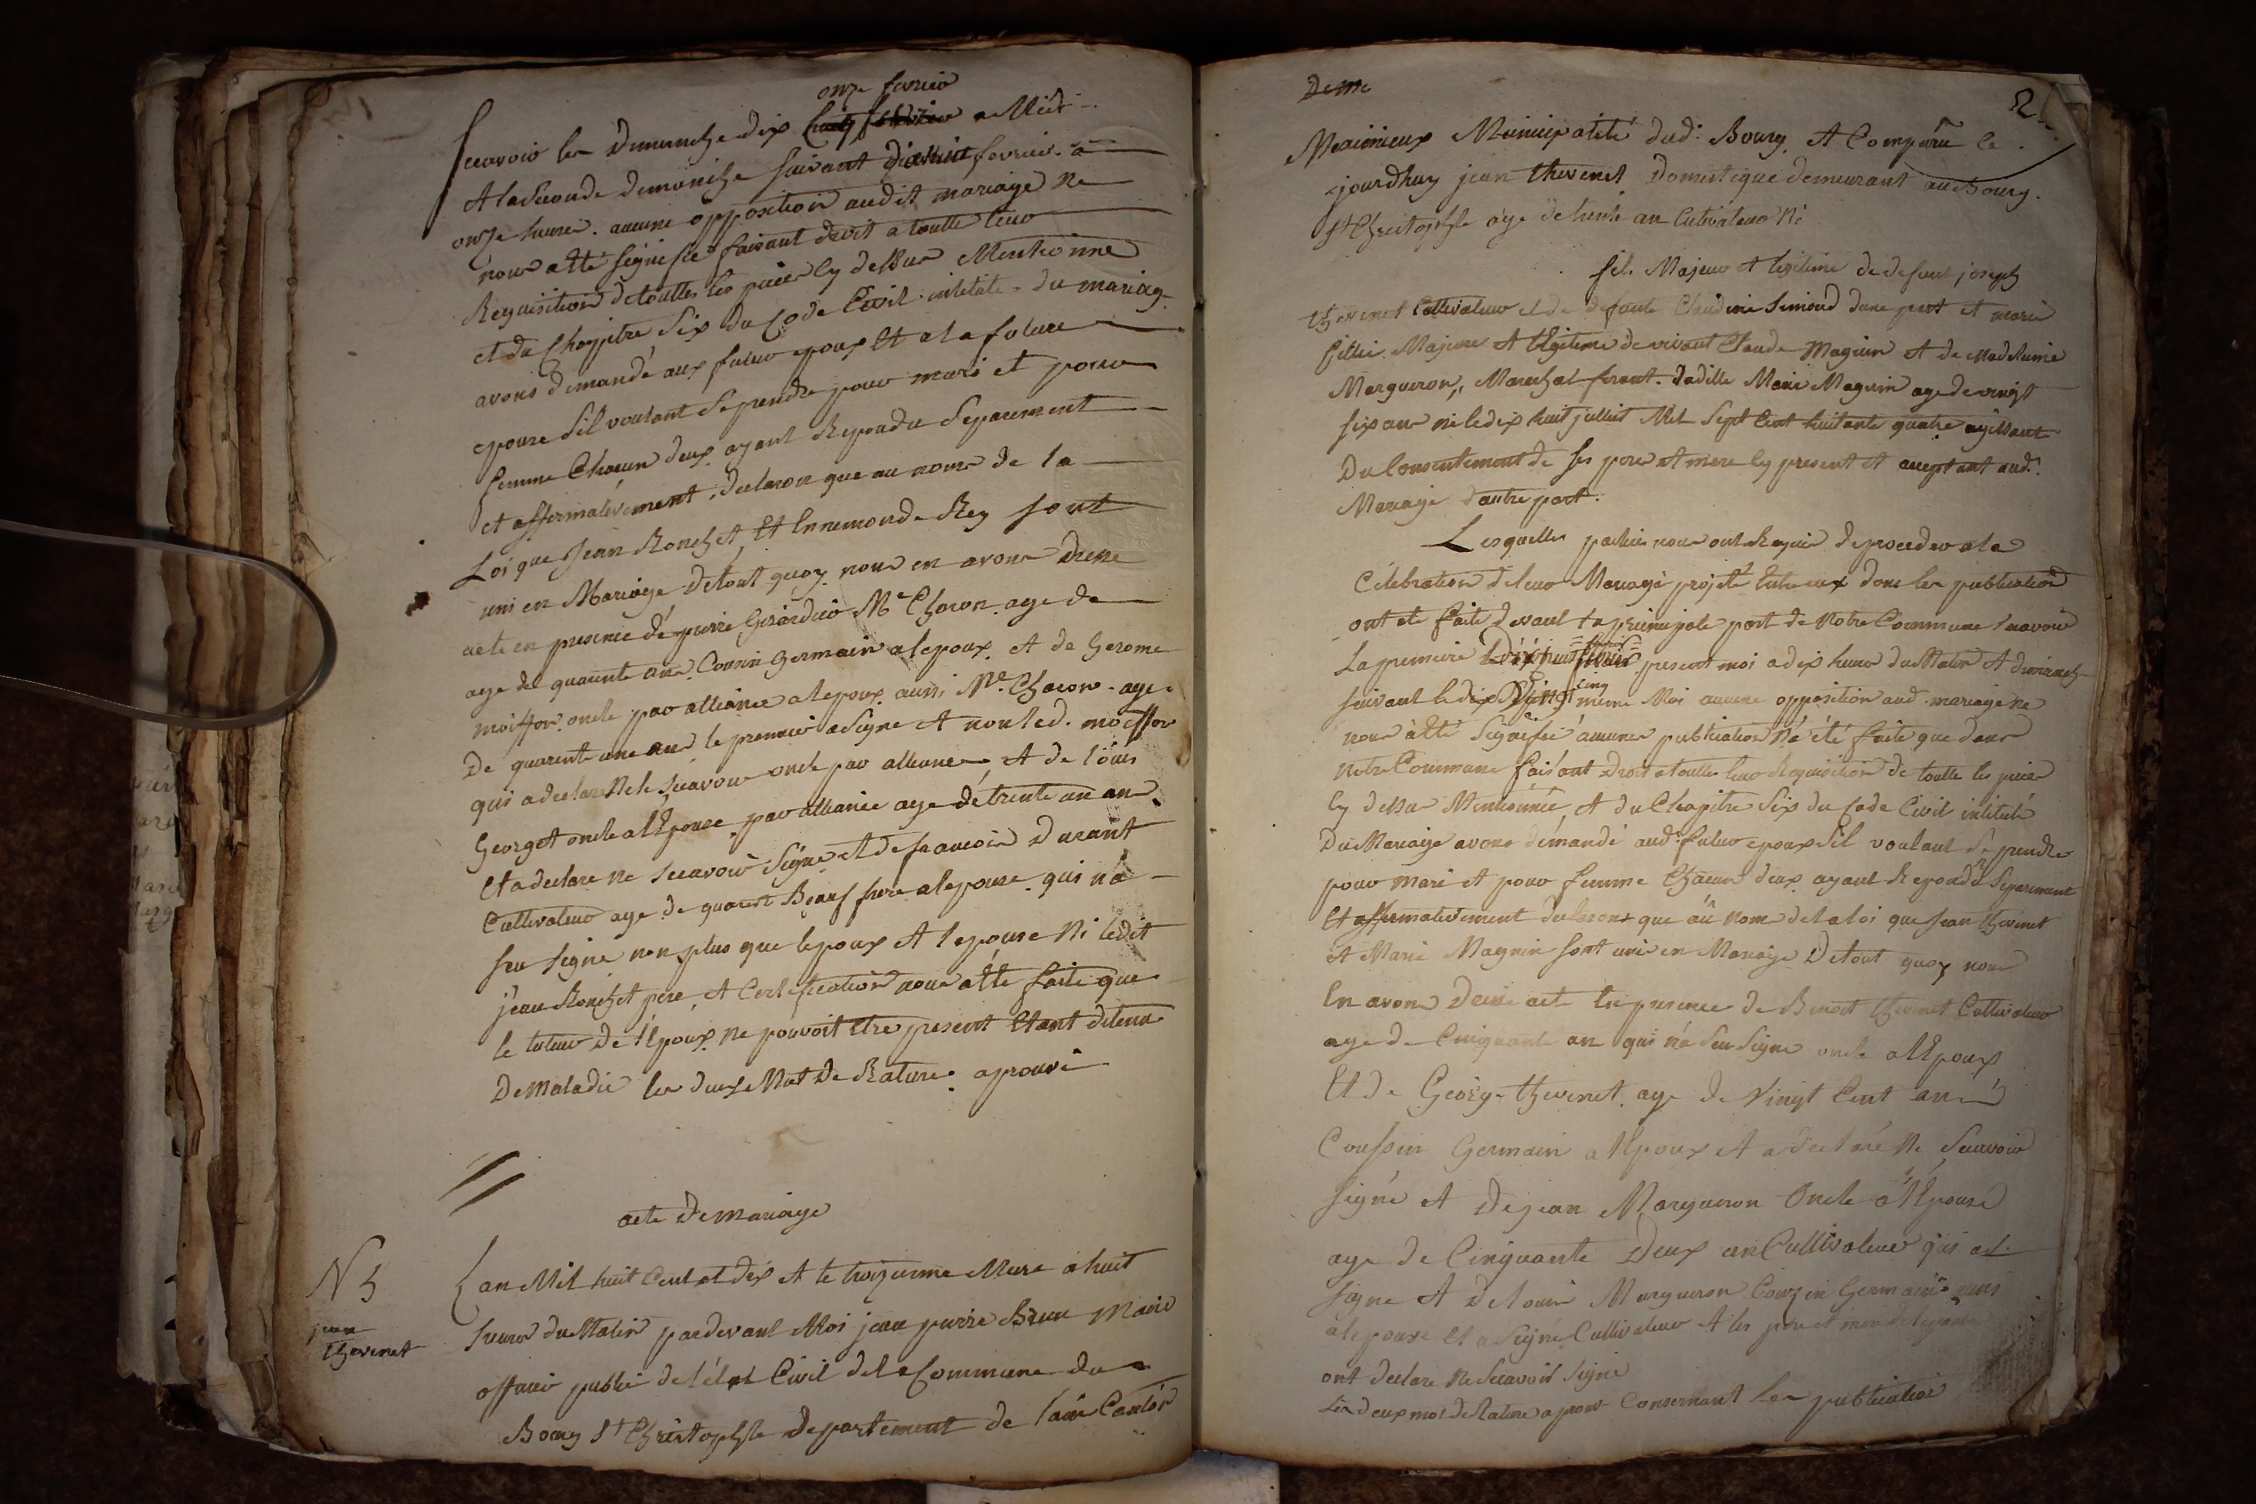 onze fevrier
Sceavoir les Dimanche dix a Midi
et la seconde dimanche suivant fevrier a
onze heures. aucune opposition audit mariage ne
nous a été signifiée faisant droit a toutte leur
Requisition de touttes les pieces cy dessus Mentionné
et du Chapitre Six du Code Civil intitulé du mariag
avons demandé aux futur epoux Et a la future
epouse S'il voulant se prendre pour mari et pour
femme Chacun deux ayant Repondu Separement
et affirmativement, declaron que au nom de la
Loi que Jean Ronchet, Et Ennemonde Rey sont
uni en Mariage De tout quoy nous en avons Dresse
acte en presence de pierre Girardier Me Charon age de
age de quarente ans Cousin Germain a lepoux. et de Gerome
moiffon oncle par alliance a lepoux aussi Me Charon age
De quarente une ans le premier a Signe et non led. moiffon
qui a declare Ne le sceavoir oncle par alliance et de Louis
Georget oncle a l'Epouse par alliance age de trente un an
et a declare ne sceavoir Signe et de francois Durant
Cultivateur age de quarente Beauf frere a lepouse qui na
seu signe non plus que lepoux et l'epouse Ni ledit
jean Ronchet pere, et Certification nous a été faite que
le tuteur De l'Epoux ne pouvoit Etre present Etant detenu
De Maladie les deux Mot De Rature aprouvé
acte De mariage
N 3
jean
thevenet
Lan Mil huit Cent et dix et le troizieme Mars a huit
heures du Matin pardevant Moi jean pierre Brun Maire
officier public de l'état Civil de la Commune du
Bourg St Christophle Departement de l'ain Canton
2
Meximieux Municipalité dud. Bourg. et Comparu Ce
jourdhuy jean thevenet Domestique demeurant au Bourg.
St Christophle age de trente an Cultivateur Né
fils Majeur et legitime de defunt joseph
thevenet Cultivateur et de defunte Claudine Simond dune part et marie
fillie Majeure et legitime de vivant Claude Magnin et de Madelaine
Margueron, Marechal ferant. Ladille Marie Magnin age de vingt
six ans né le dix huit juillet Mil Sept Cent huitante quatre agissant
Du Consentement de ses pere et mere cy present et aceptant aud.
Mariage d'autre part.
Lesquelles parties nous ont Requis de proceder a la
Célébration de leur Mariage projeté Entre eux dont les publication
ont été faite devant la principale port de Notre Commune sceavoir
La premiere present moi a dix heures du Matin et dimanch
suivant le cinq meme Moi aucune opposition aud. mariage ne
nous a été Signifiée aucunes publication na été faite que dans
Notre Commune faisant Droit a toutte leur Requisition de toutte les pieces
Cy dessus Mentionnée, et du Chapitre Six du Code Civil intitulé
Du Mariage avons demandé aud. futur epoux s'il voulant se prendre
pour mari et pour femme Chacun deux ayant Repondu Separement
et affirmativement declarons que au nom de la loi que jean thevenet
et Marie Magnin sont unis en Mariage De tout quoy nous
En avons Dressé acte En presence de Benoit thevenet Cultivateur
age de Cinquante an qui na Seu Signe oncle a l'Epoux
Et de Georg thevenet age de Vingt Cent an
Coussin Germain a l'Epoux et a declaré Ne Sceavoir
signé et De jean Margueron Oncle a l'Epouse
age de Cinquante Deux an Cultivateur qui a
signe et De Louis Margueron Couzin Germain aussi
a lepouse et a Signé Cultivateur et les pere et mere de lepouse
ont declare Ne Sceavoir Signe
Les deux mot de Rature aprouv Consernant les publication